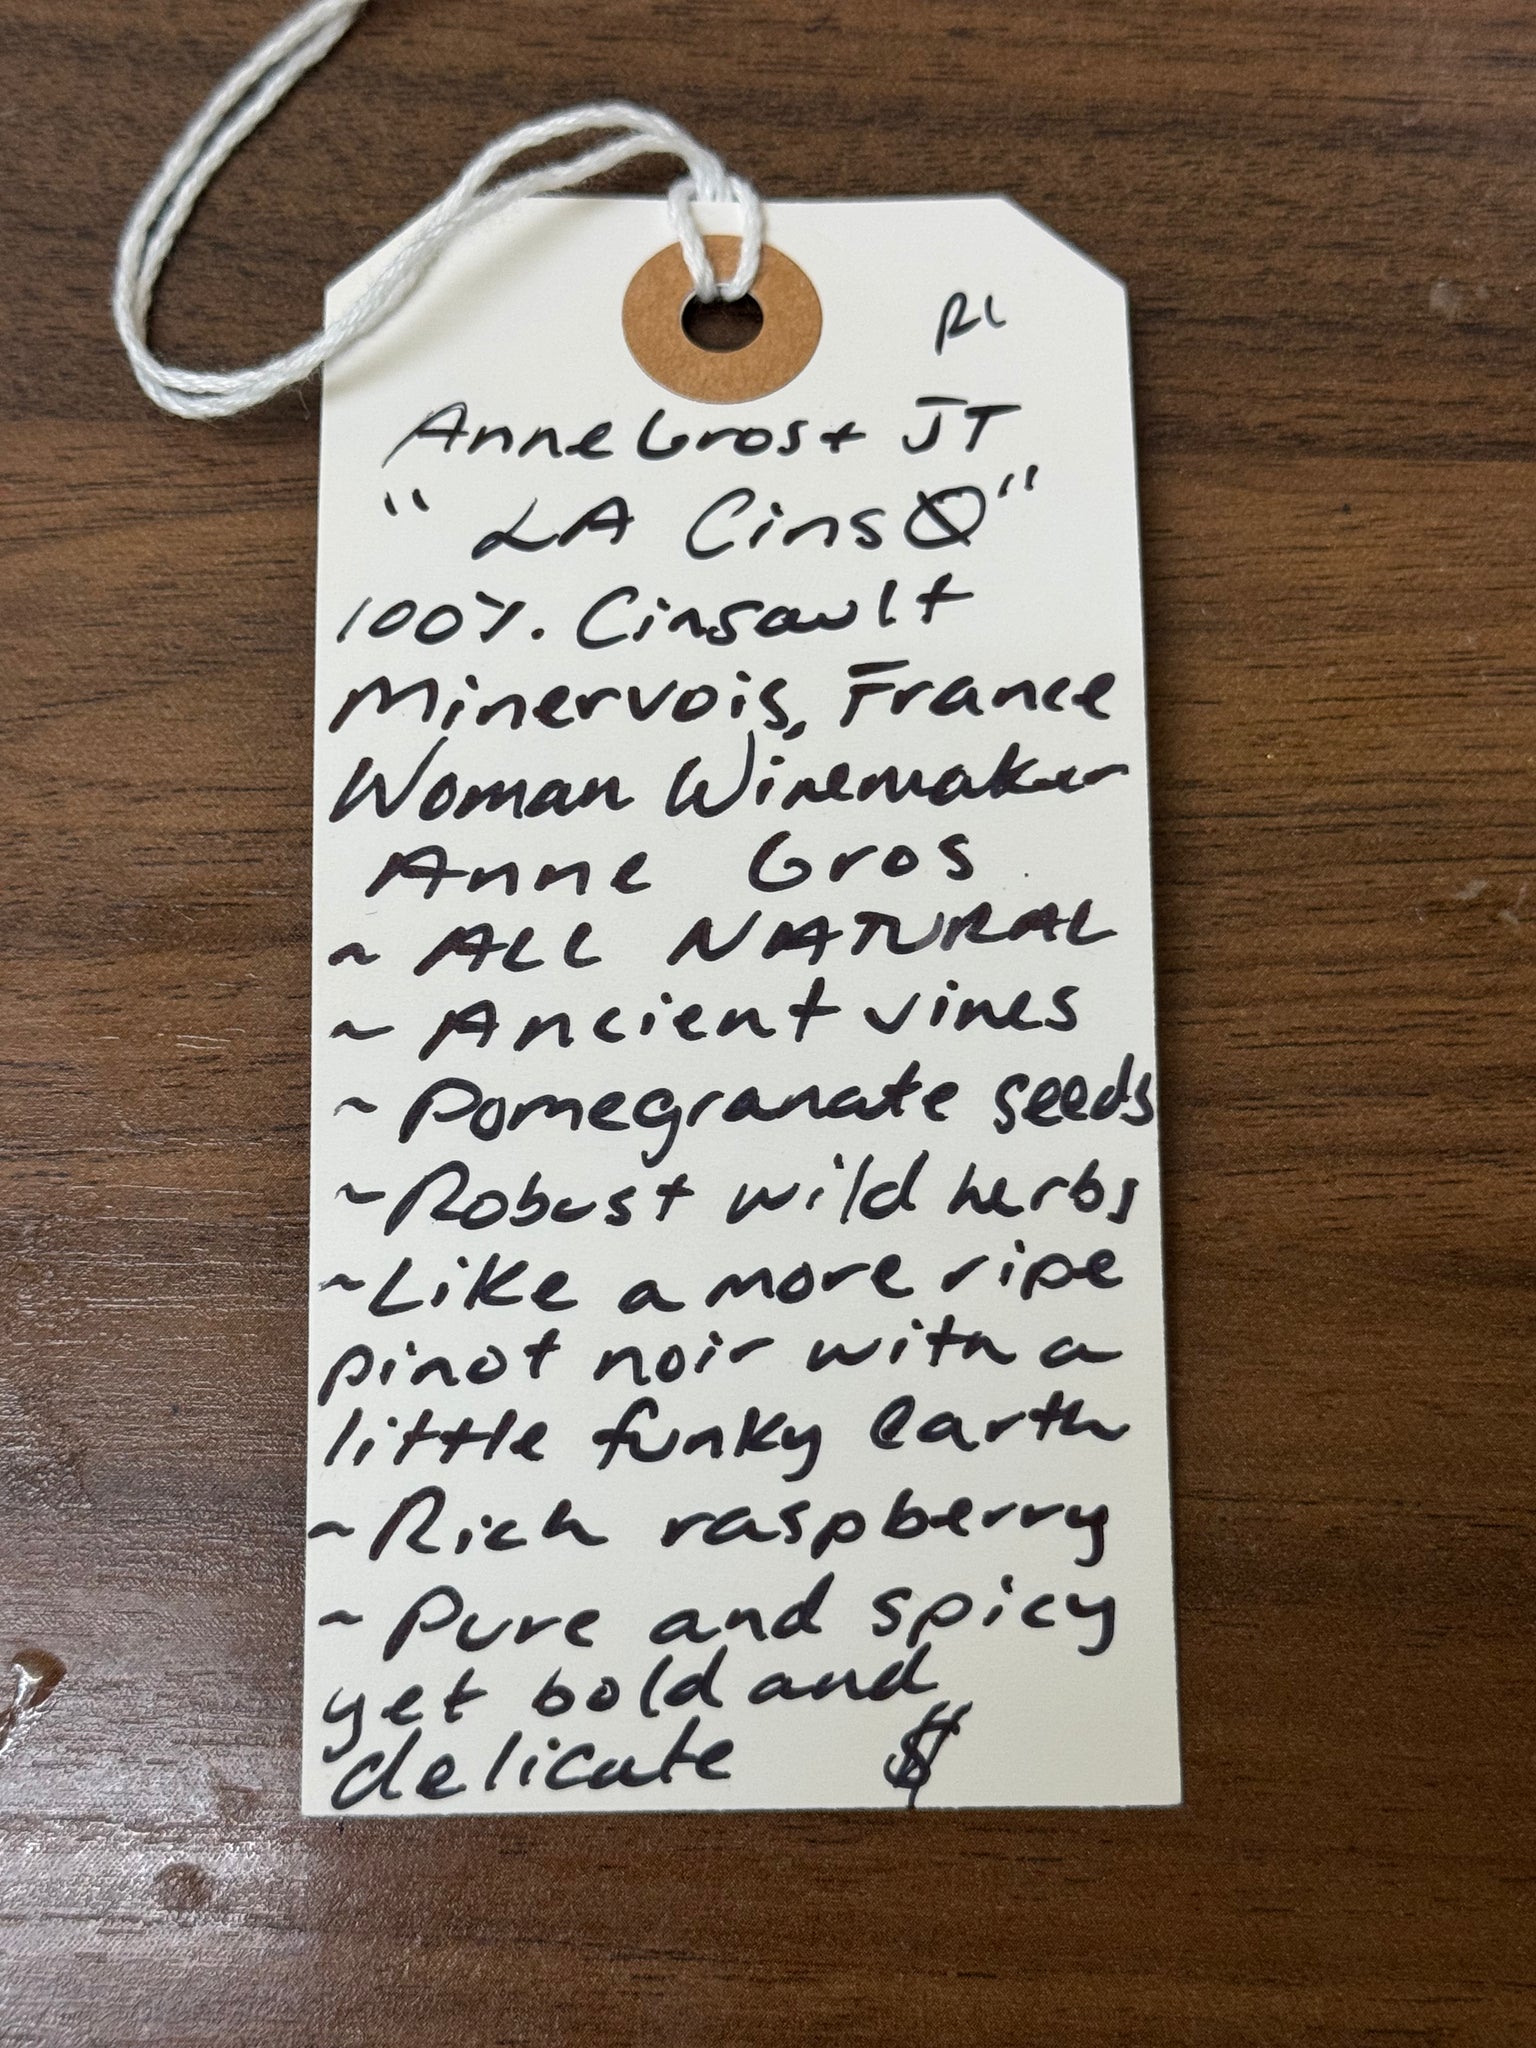 RL
Anne Gros + JT
"LA CinsØ"
100%. Cinsault
Minervois, France
Woman Winemaker
Anne Gros
~ ALL NATURAL
~ Ancient vines
~ Pomegranate seeds
~Robust wild herbs
~Like a more ripe
pinot noir with a
little funky earth
~Rich raspberry
~Pure and spicy
yet bold and
delicate $